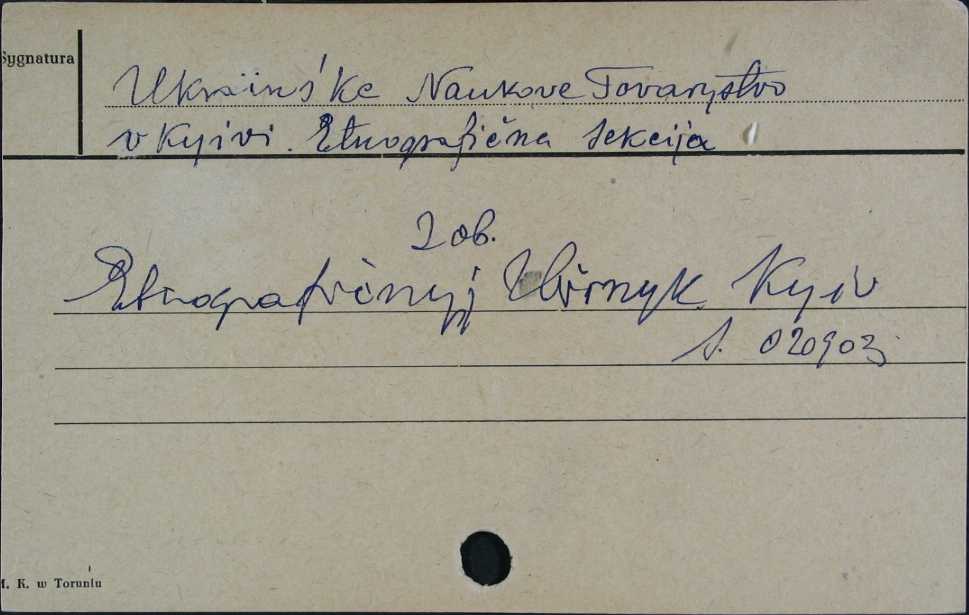 Sygnatura
Ukraïins'ke Naukove Tovarystvo
v Kyivi. Etnografična Sekcija
Zob.
Etnografičnyj Zbirnyk Kyiv
S. 020903
M. K. w Toruniu